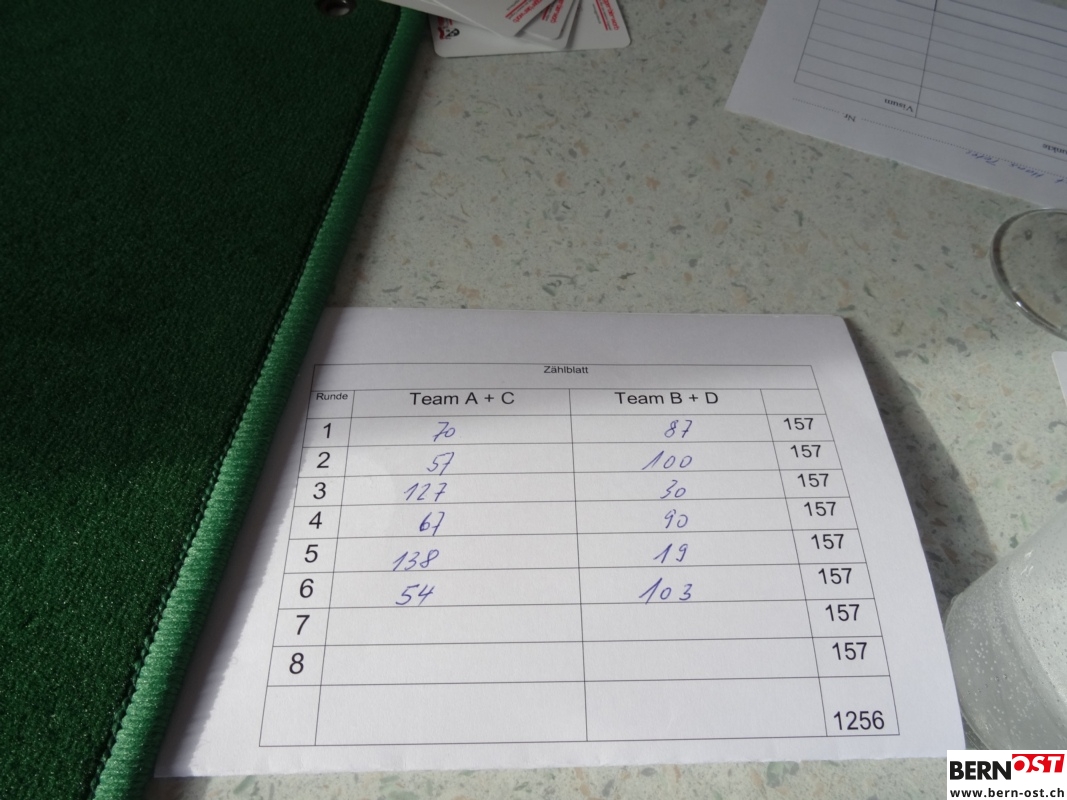 Visum
Nr.
Zählblatt
Runde Team A + C Team B + D
1 70 87 157
2 57 100 157
3 127 30 157
4 67 90 157
5 138 19 157
6 54 103 157
7 157
8 157
1256
BERNOST
www.bern-ost.ch